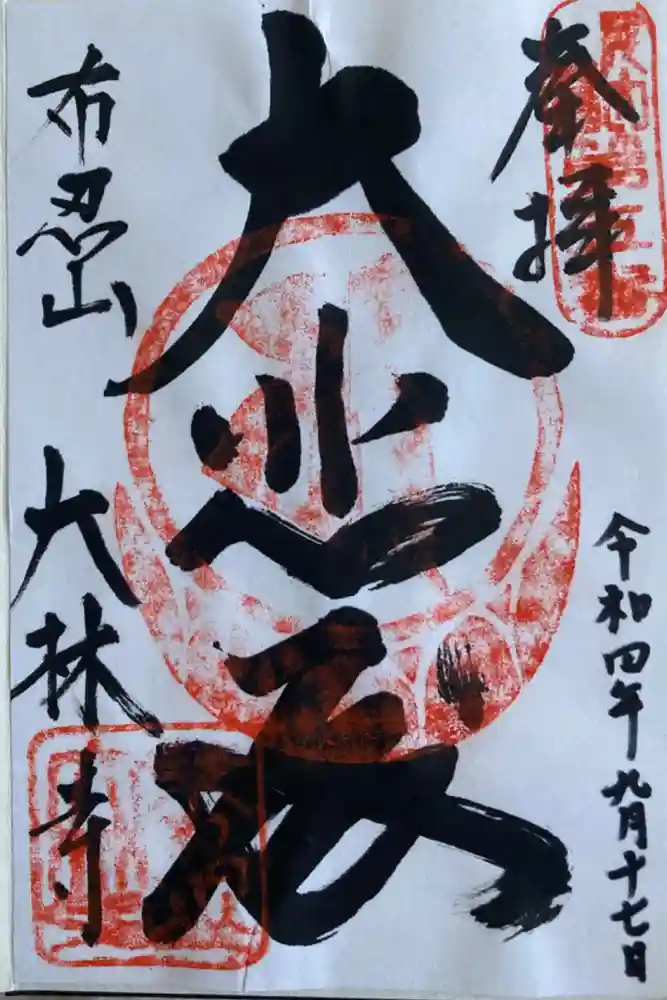 奉拝
令和四年九月十七日
大悲殿
布忍山
大林寺